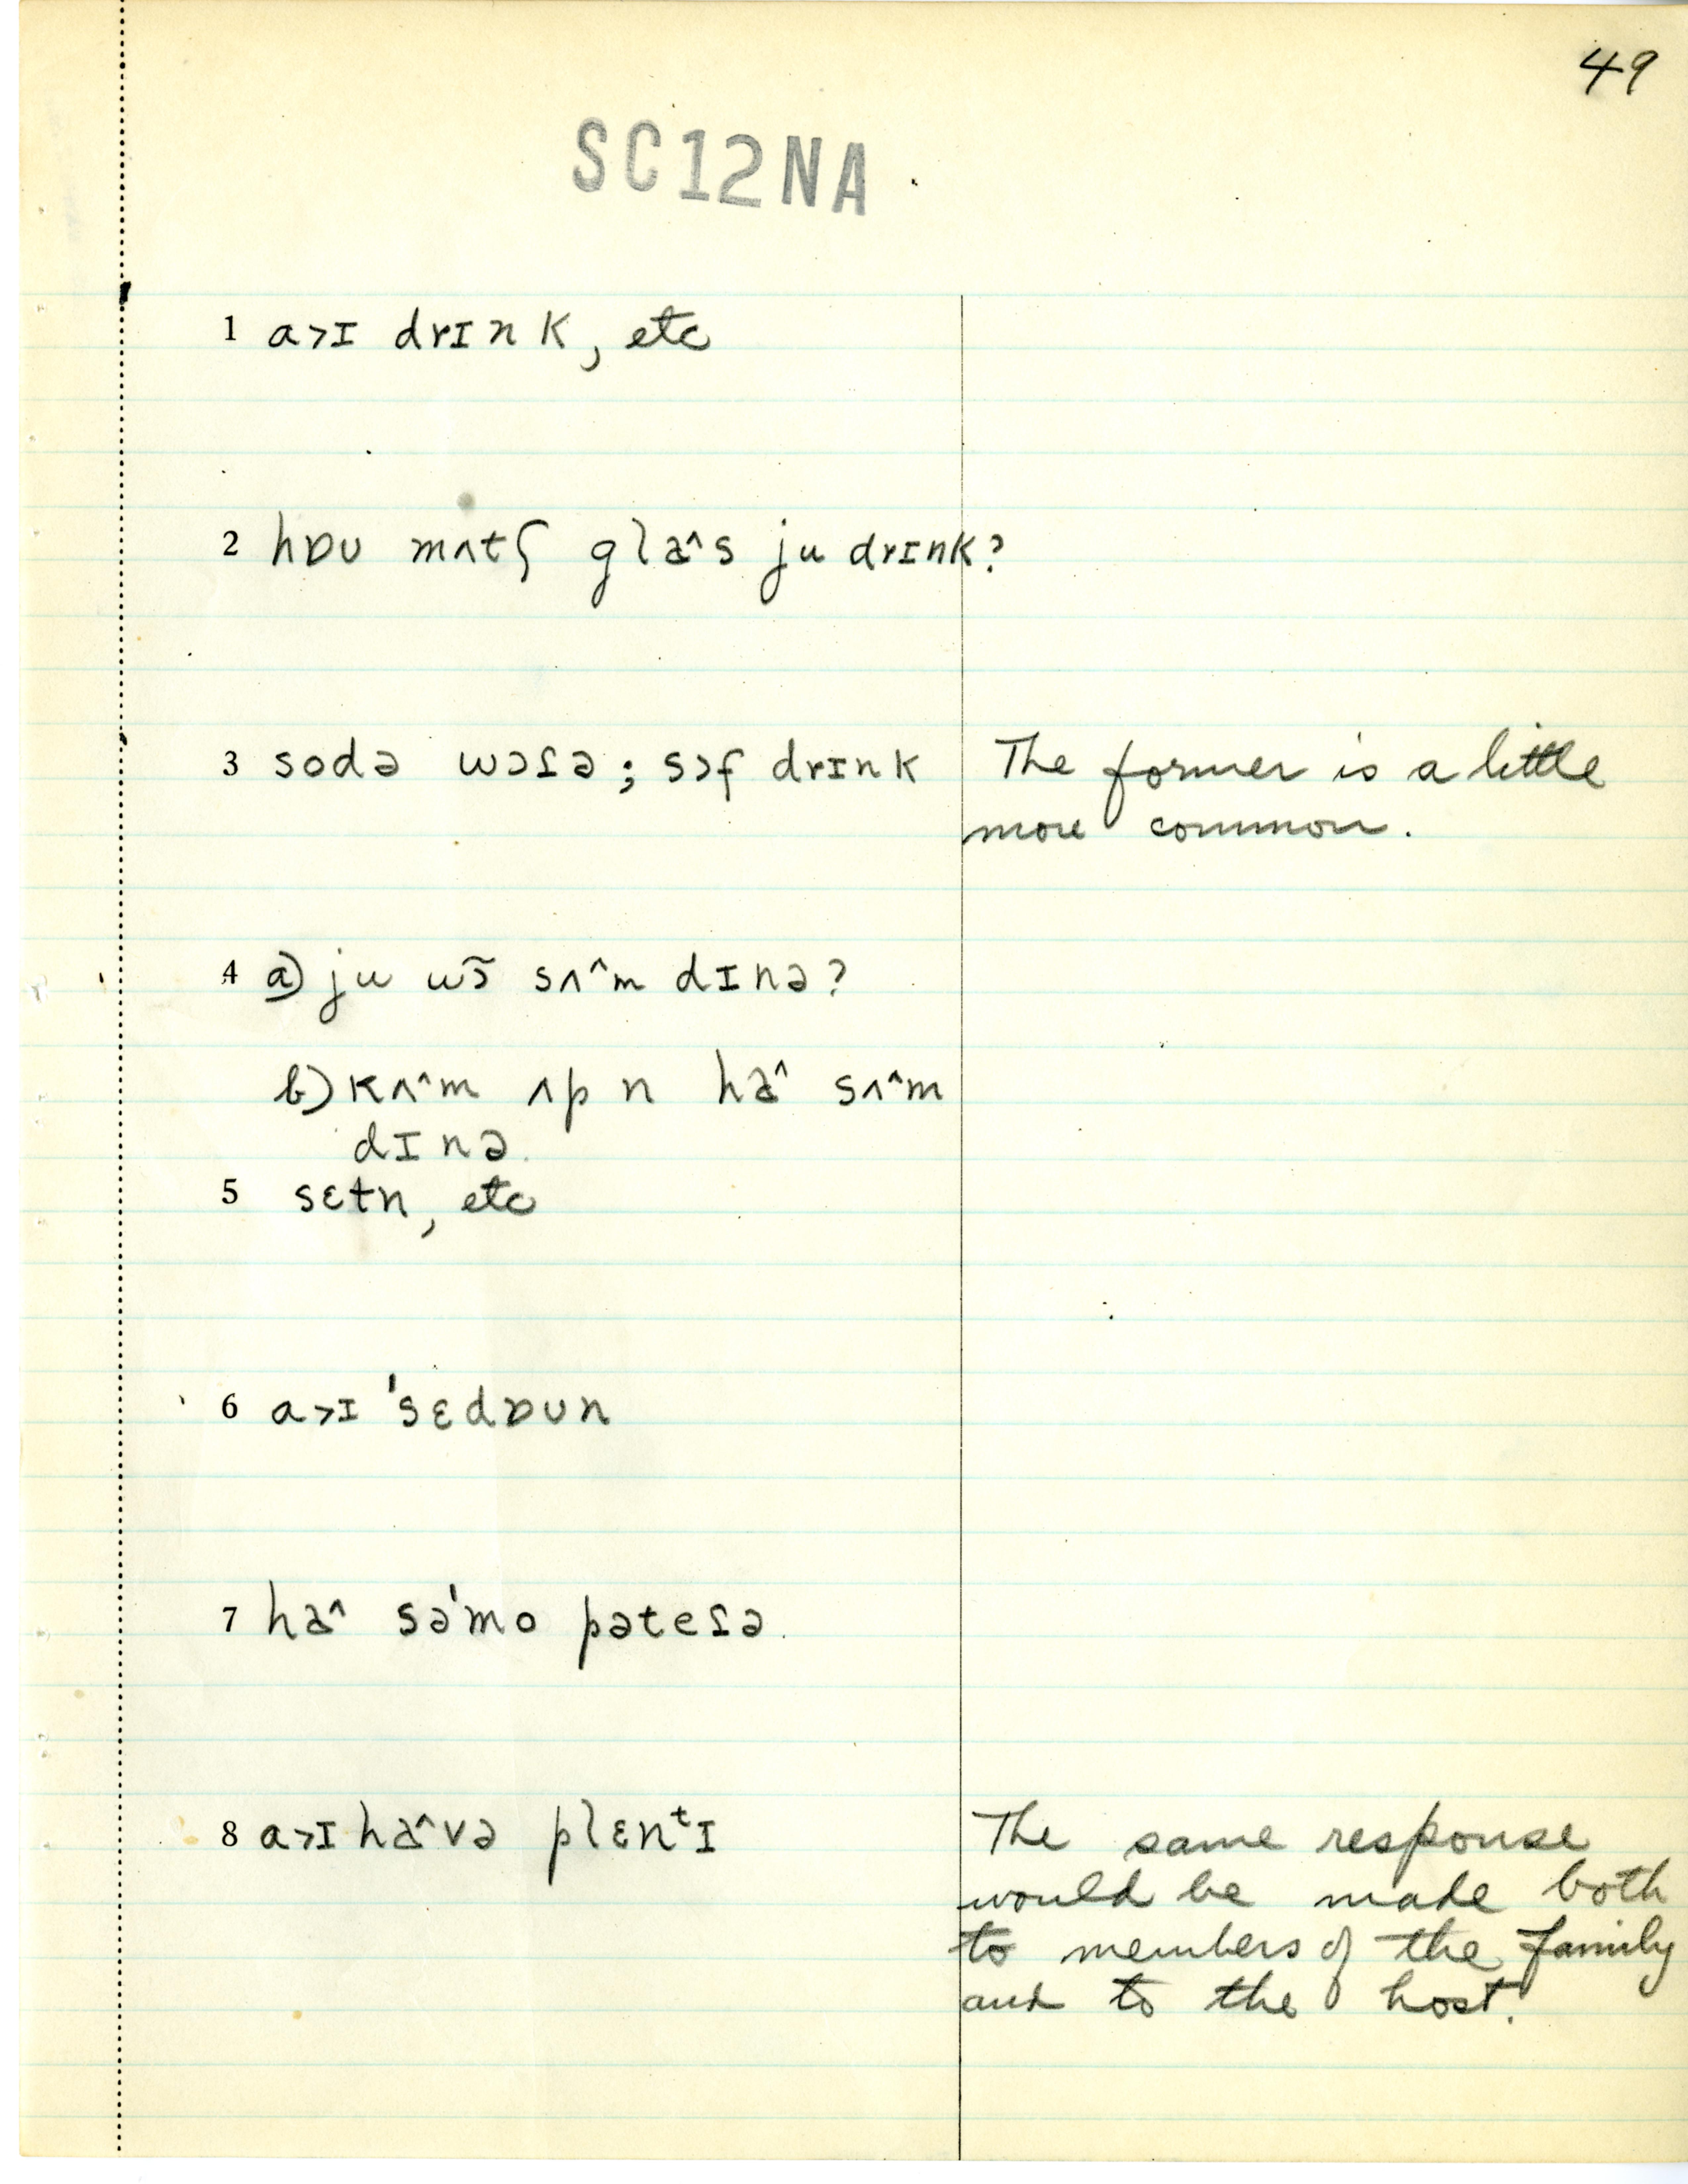 49
SC12NA
1 a˃ɪ drɪnk, etc
2 hɒʊ mʌtʃ glaˆs ju drɪnk?
3 sodə wɔɾə; sɔf drɪnk The former is a little
more common.
4 a) ju wɔ̃ sʌˆm dɪnə?
b) kʌˆm ʌp n haˆ sʌˆm
dɪnə.
5 sɛtn, etc
6 a˃ɪ ˈsɛdɒʊn
7 haˆ səˈmo pəteɾə.
8 a˃ɪ haˆvə plɛnᵗɪ The same response
would be made both
to members of the family
and to the host.